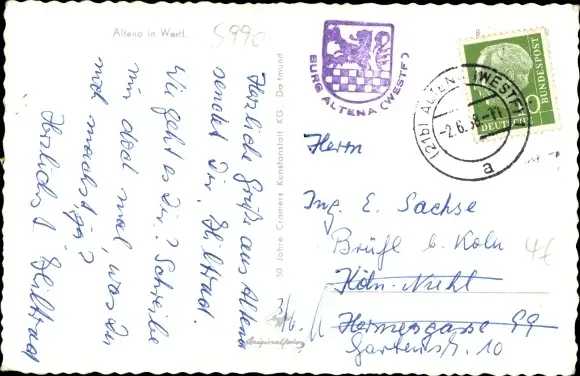 Altena in Westf.
5990
Herzliche Grüße aus Altena
sendet Dir, Hiltrad.
Wie geht es Dir? Schreibe
mir doch mal, was Du
noch machst, ja?
Herzlichst Hiltrad
50 Jahre Cramers Kunstanstalt KG · Dortmund
BURG ALTENA (WESTF)
(21b) ALTENA (WESTF)
-2.6.58.-11
a
DEUTSCHE
BUNDESPOST
Herrn
Ing. E. Sachse
Brühl b. Köln
Köln-
Hermesgasse 99
Gartenstr. 10